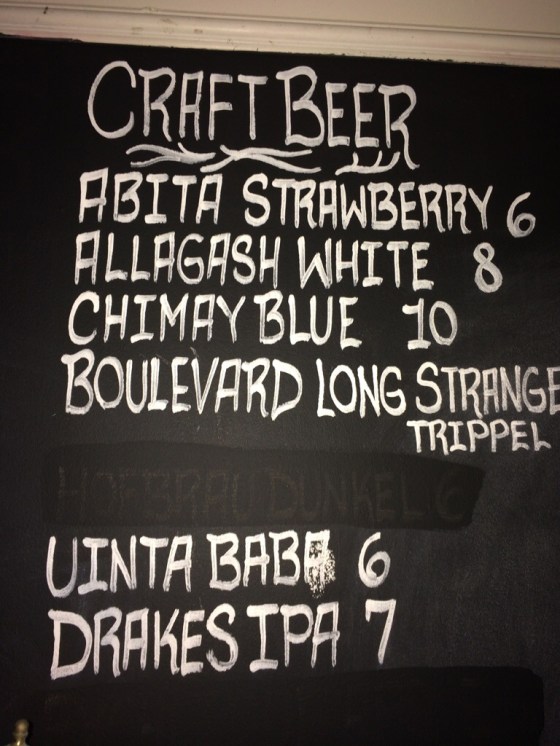 CRAFT BEER
ABITA STRAWBERRY 6
ALLAGASH WHITE 8
CHIMAY BLUE 10
BOULEVARD LONG STRANGE
TRIPPEL
HOFBRAU DUNKEL 6
UINTA BABA 6
DRAKES IPA 7